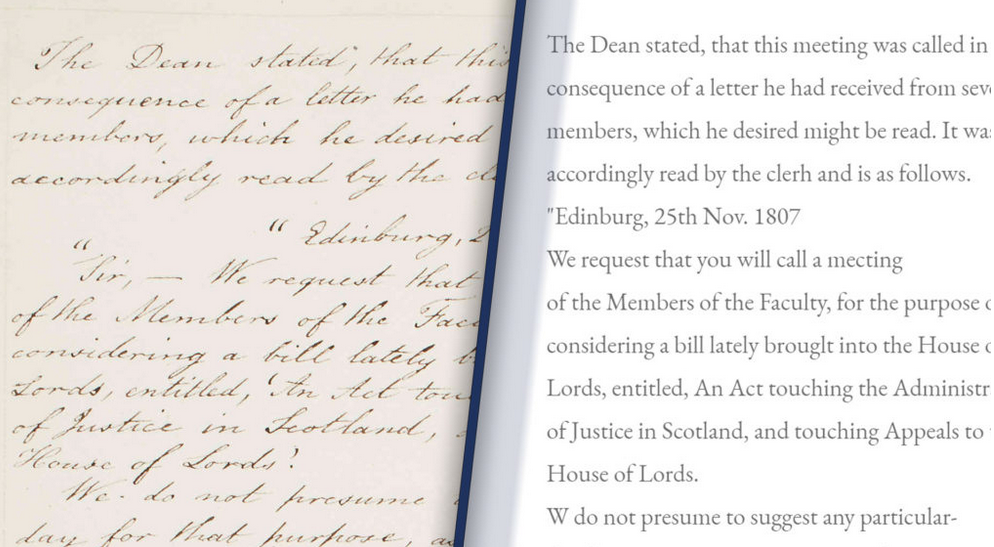 The Dean stated, that this
consequence of a letter he had
members, which he desired
accordingly read by the
"Edinburg,
"Sir, — We request that
of the Members of the
considering a bill lately
Lords, entitled, 'An Act
of Justice in Scotland,
House of Lords'.
We do not presume
day for that purpose,
The Dean stated, that this meeting was called in
consequence of a letter he had received from
members, which he desired might be read. It
accordingly read by the clerh and is as follows.
"Edinburg, 25th Nov. 1807
We request that you will call a mecting
of the Members of the Faculty, for the purpose
considering a bill lately brouglt into the House
Lords, entitled, An Act touching the
of Justice in Scotland, and touching Appeals to
House of Lords.
W do not presume to suggest any particular-